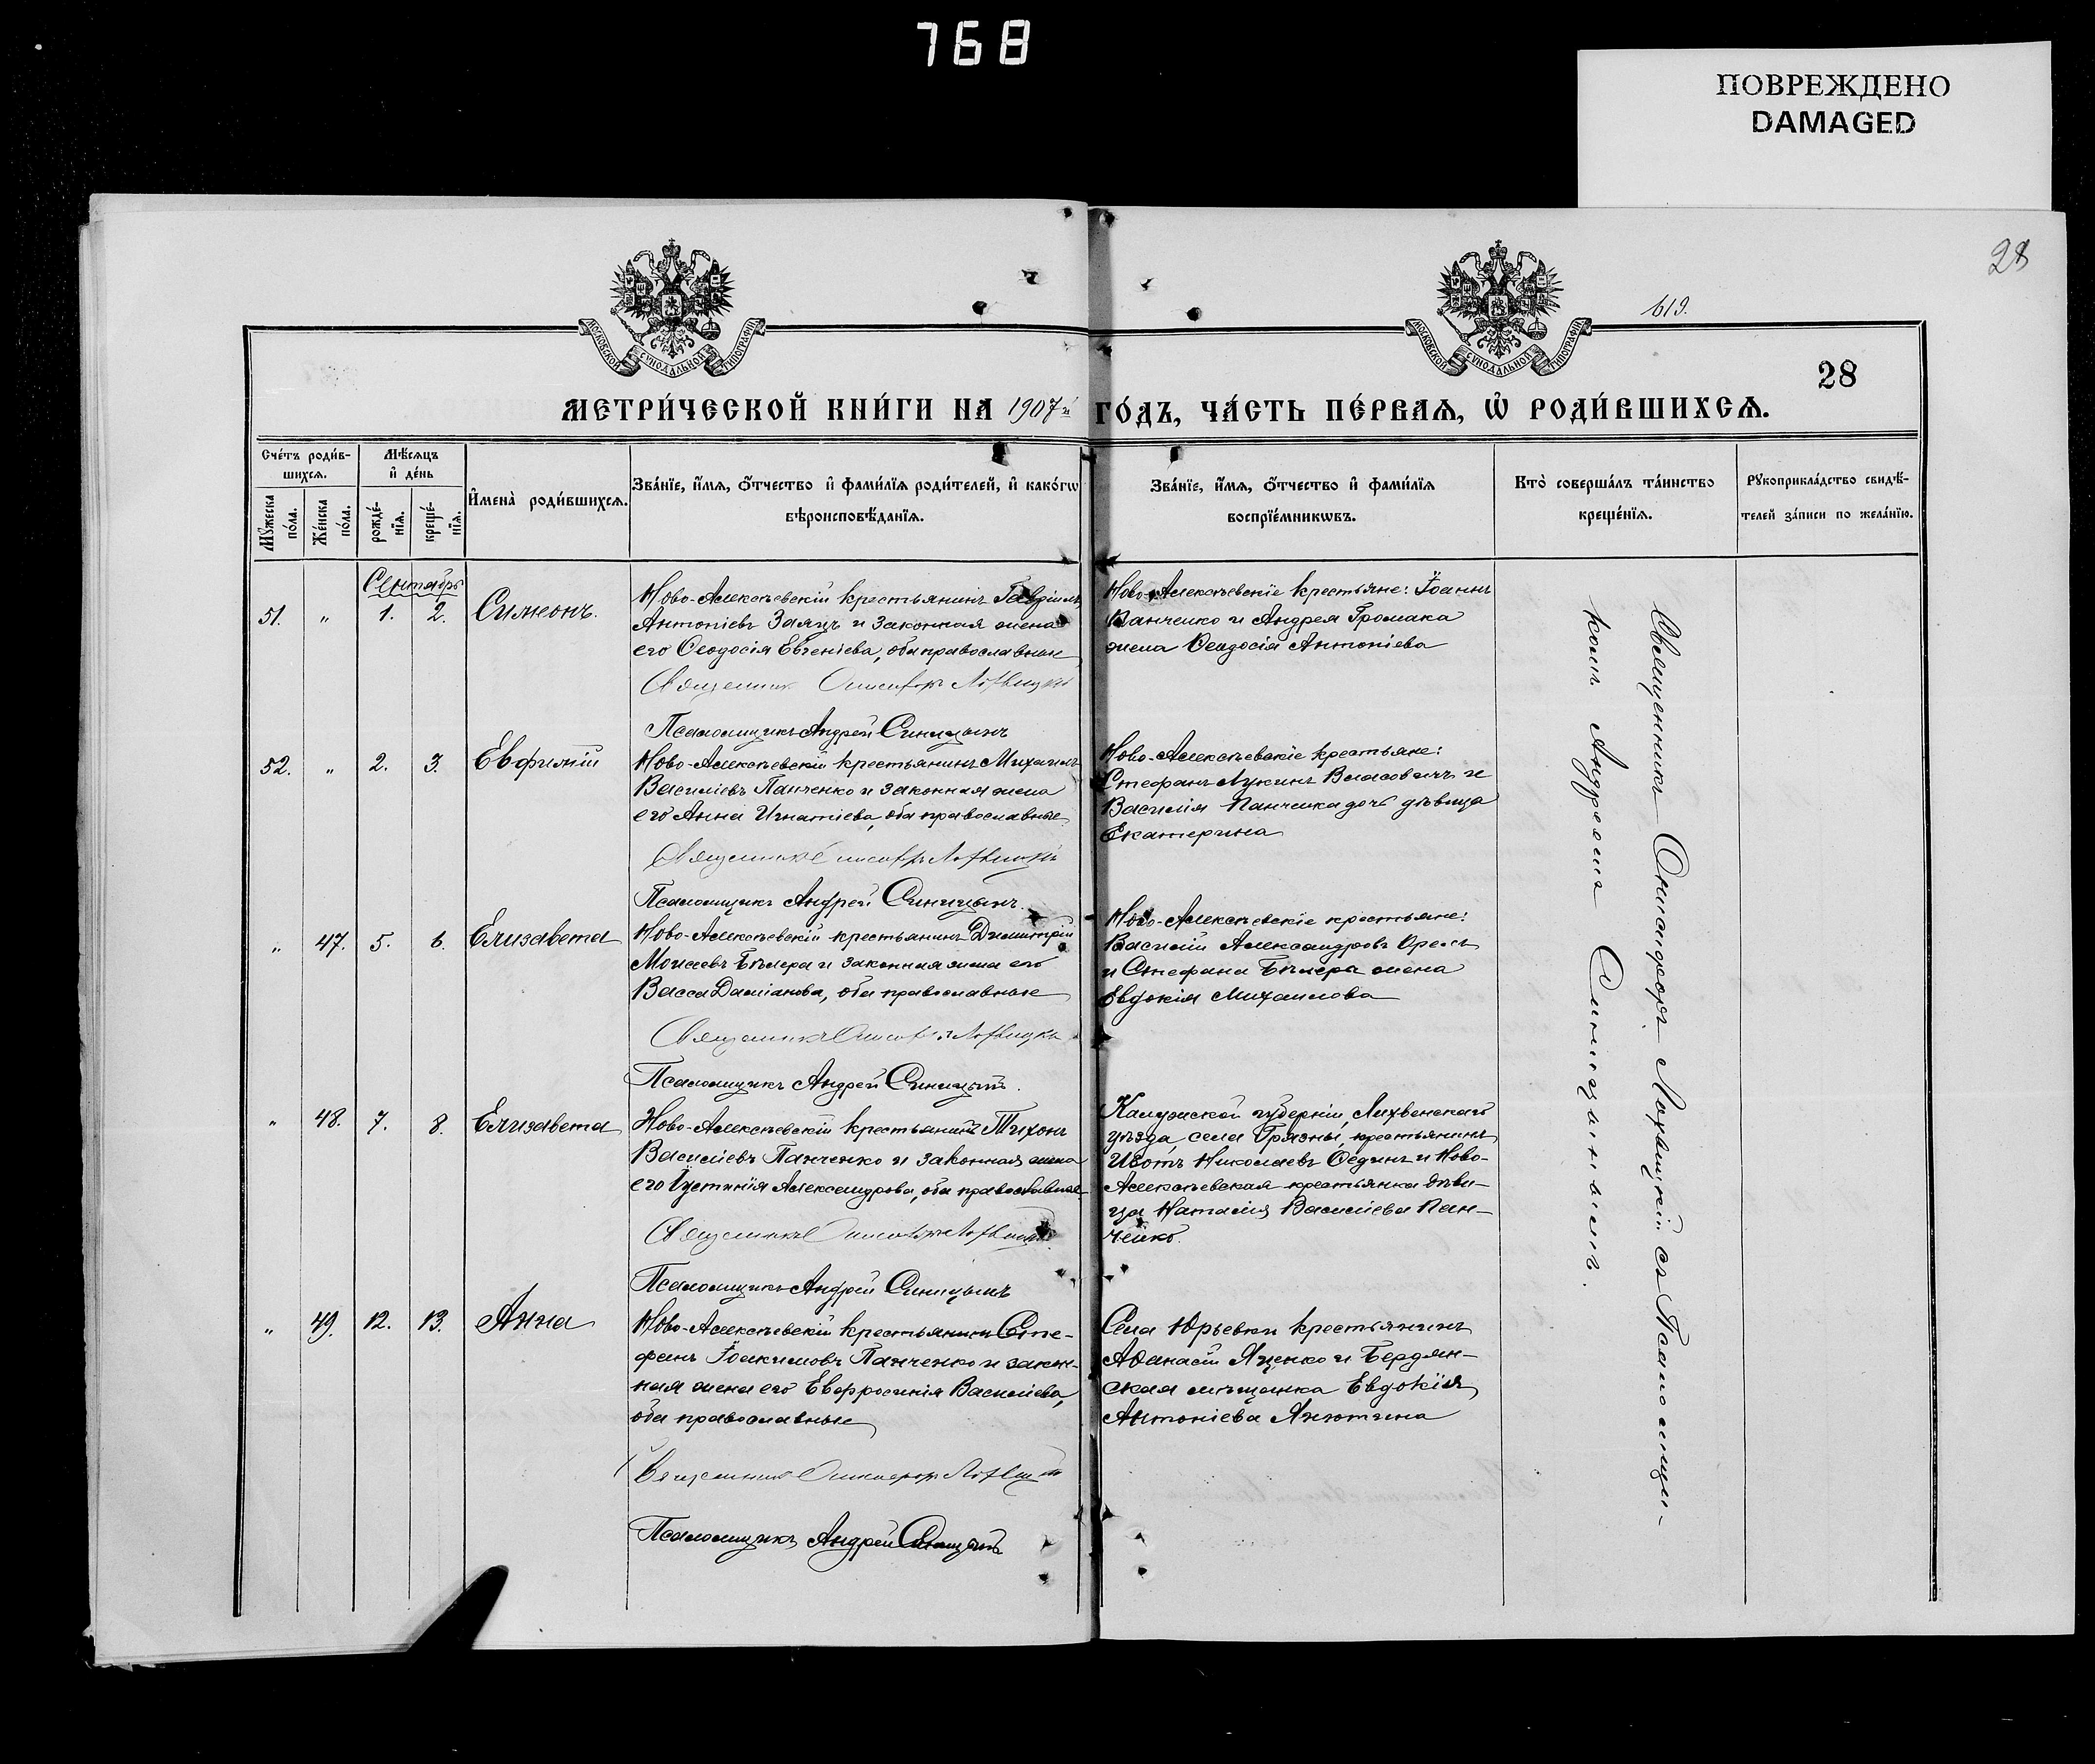 768
ПОВРЕЖДЕНО
DAMAGED
28
613.
28
МОСКОВСКОЙ СУНОДАЛЬНОЙ ТИПОГРАФІИ
МОСКОВСКОЙ СУНОДАЛЬНОЙ ТИПОГРАФІИ
МЕТРИ́ЧЕСКОЙ КНИ́ГИ НА 1907й ГО́ДЪ, ЧА́СТЬ ПЕ́РВАЯ, Ѡ҆ РОДИ́ВШИХСѦ.
Сче́тъ роди́в-
шихсѧ.
Мѣ́сѧцъ
и҆ де́нь
Мꙋ́жеска
по́ла.
Же́нска
по́ла.
рожде́-
нїѧ.
креще́-
нїѧ.
И҆мена̀ роди́вшихсѧ.
Зва́нїе, и҆́мѧ, ѻ҆́тчество и҆ фами́лїѧ роди́телей, и҆ како́гѡ
вѣроисповѣ́данїѧ.
Зва́нїе, и҆́мѧ, ѻ҆́тчество и҆ фами́лїѧ
воспрїе́мникѡвъ.
Кто̀ соверша́лъ та́инство
креще́нїѧ.
Рꙋкоприкла́дство свидѣ́-
телей за́писи по жела́нїю.
Сентябрь
51. „ 1. 2. Симеонъ.
Ново-Алексѣевскій крестьянинъ Гавріилъ
Антоніевъ Заяцъ и законная жена
его Ѳеодосія Евгеніева, оба православные
Священникъ Никифоръ Лохвицкій
Псаломщикъ Андрей Синицынъ
Ново-Алексѣевскіе крестьяне: Іоаннъ
Панченко и Андрея Громака
жена Ѳеодосія Антоніева
52. „ 2. 3. Евфимій
Ново-Алексѣевскій крестьянинъ Михаилъ
Василіевъ Панченко и законная жена
его Анна Игнатіева, оба православные
Священникъ Лохвицкій
Псаломщикъ Андрей Синицынъ.
Ново-Алексѣевскіе крестьяне:
Стефанъ Лукинъ и
Василія Панченка дочь дѣвица
Екатерина
„ 47. 5. 6. Елизавета
Ново-Алексѣевскій крестьянинъ Димитрій
Моисеевъ Бѣлера и законная жена его
Васса Даміанова, оба православные
Священникъ Лохвицкій
Псаломщикъ Андрей Синицынъ.
Ново-Алексѣевскіе крестьяне:
Василій Александровъ Орелъ
и Стефана Бѣлера жена
Евдокія Михаилова
„ 48. 7. 8. Елизавета
Ново-Алексѣевскій крестьянинъ Тихонъ
Василіевъ Панченко и законная жена
его Іустинія Александрова, оба православные
Священникъ Лохвицкій
Псаломщикъ Андрей Синицынъ
Калужской губерніи, Лихвенскаго
уѣзда, села Грязны, крестьянинъ
Николаевъ и Ново-
Алексѣевская крестьянка дѣви-
ца Наталія Василіева Пан-
ченко.
„ 49. 12. 13. Анна
Ново-Алексѣевскій крестьянинъ Сте-
фанъ Іоакимовъ Панченко и закон-
ная жена его Евфросинія Василіева,
оба православные
Священникъ Никифоръ Лохвицкій
Псаломщикъ Андрей Синицынъ
Села Юрьевки крестьянинъ
Аѳанасій Яценко и Бердян-
ская мѣщанка Евдокія
Антоніева
Священникъ Никифоръ Лохвицкій съ Псаломщи-
комъ Андреемъ Синицынымъ.